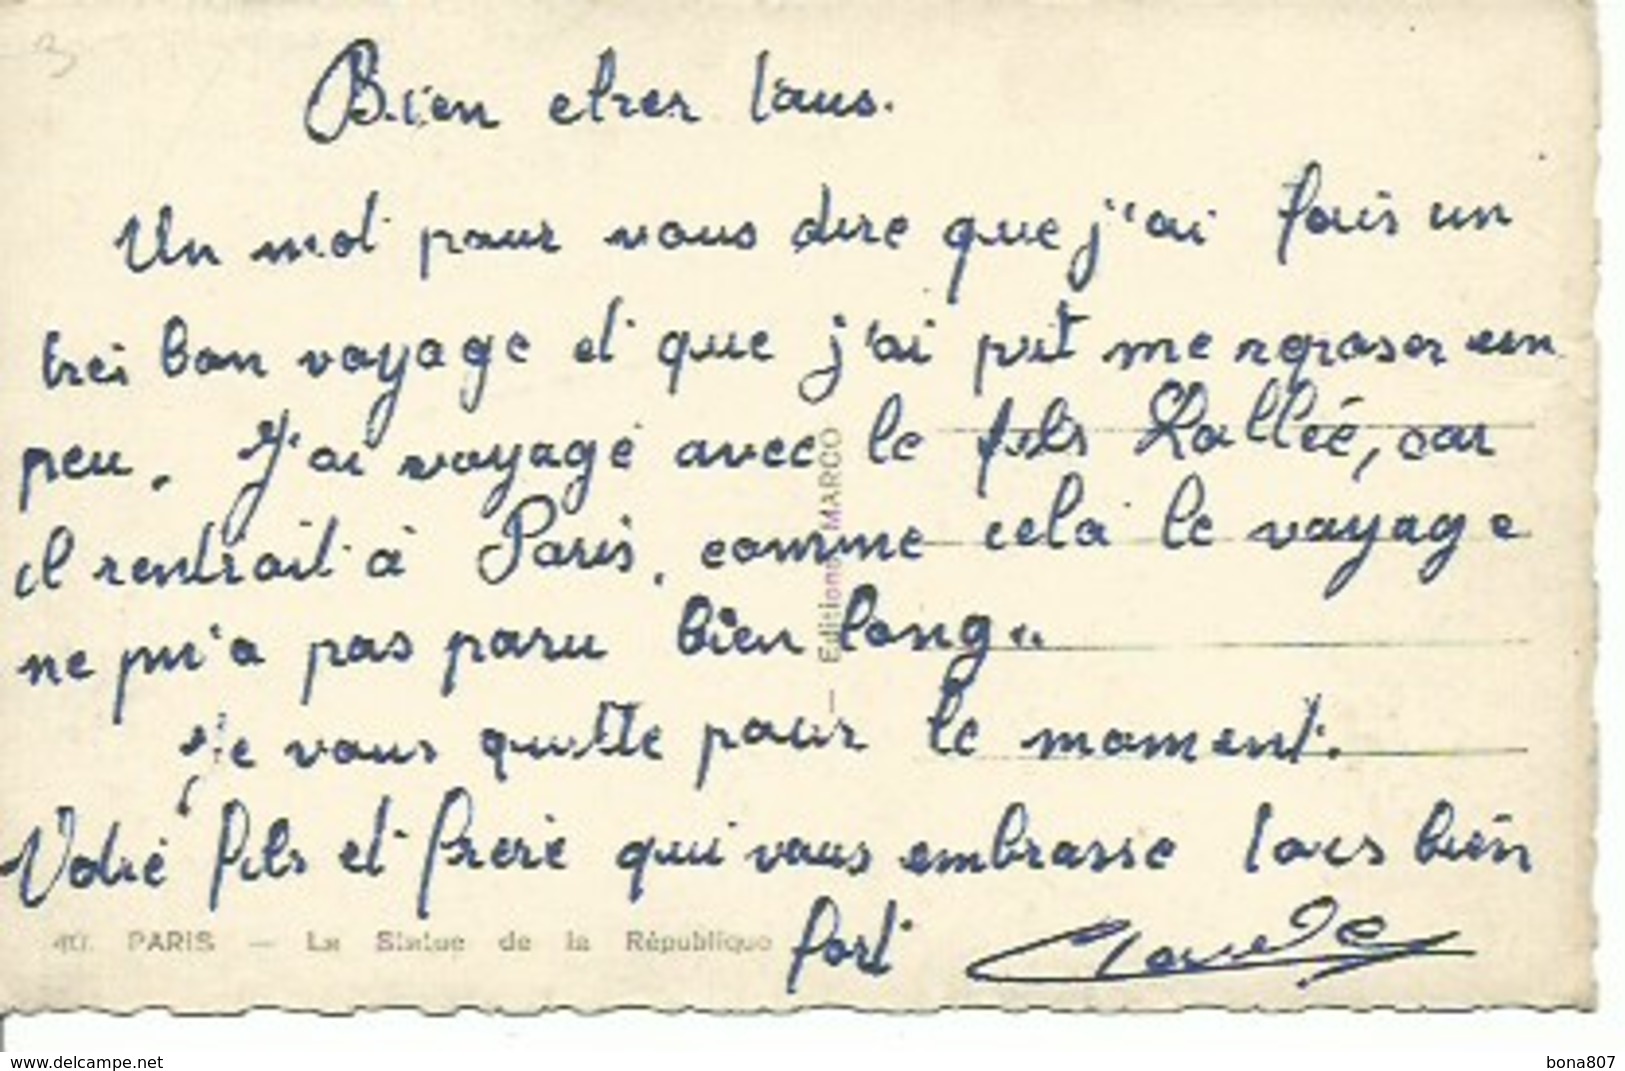 Bien chers tous.
Un mot pour vous dire que j'ai fais un
très bon voyage et que j'ai put me reposer un
peu. J'ai voyagé avec le fils Lallée, car
il rentrait à Paris, comme celà le voyage
ne m'a pas paru bien long..
Je vous quitte pour le moment.
Votre fils et frère qui vous embrasse tous bien
fort Claude
40. PARIS — La Statue de la République
— Editions MARCO
www.delcampe.net
bona807